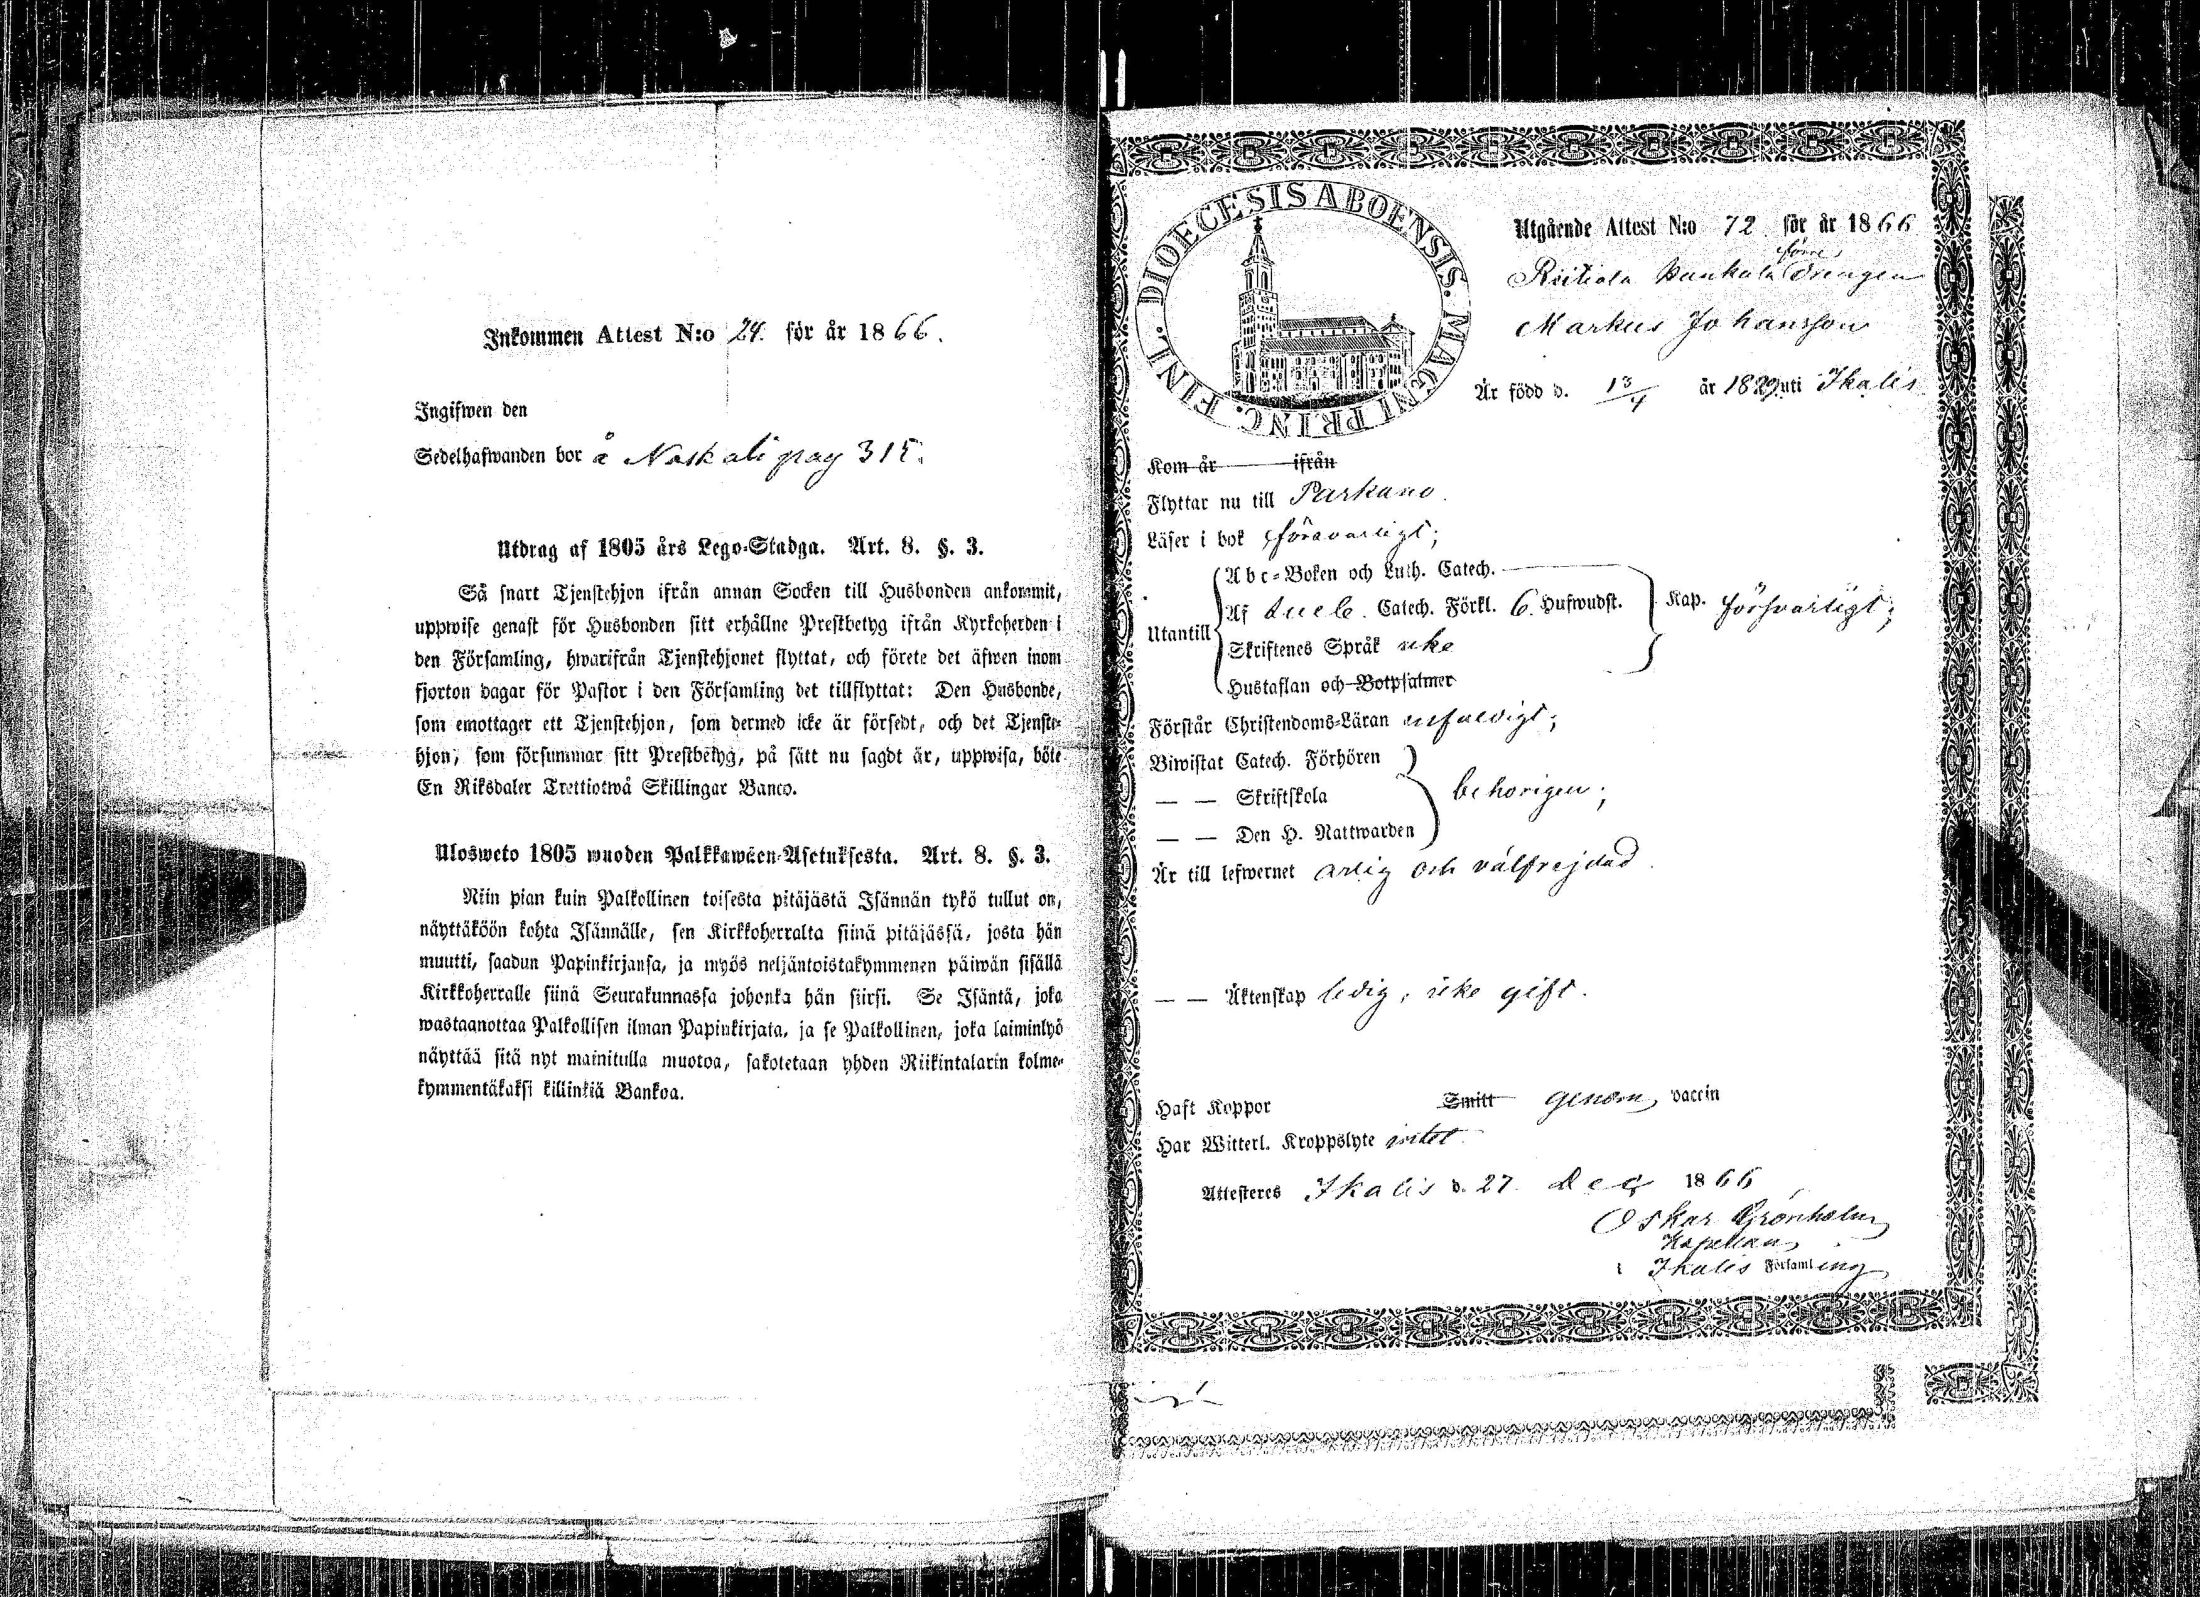 Inkommen Attest N:o 24. för år 1866.
Ingifwen den
Sedelhafwanden bor å Naskali pag 315.
Utdrag af 1805 års Lego-Stadga. Art. 8. §. 3.
Så snart Tjenstehjon ifrån annan Socken till Husbonden ankommit,
uppwise genast för Husbonden sitt erhållne Prestbetyg ifrån Kyrkoherden i
den Församling, hwarifrån Tjenstehjonet flyttat, och förete det äfwen inom
fjorton dagar för Pastor i den Församling det tillflyttat: Den Husbonde,
som emottager ett Tjenstehjon, som dermed icke är försedt, och det Tjenste-
hjon, som försummar sitt Prestbetyg, på sätt nu sagdt är, uppwisa, böte
En Riksdaler Trettiotwå Skillingar Banco.
Ulosweto 1805 wuoden Palkkawäen-Asetuksesta. Art. 8. §. 3.
Niin pian kuin Palkollinen toisesta pitäjästä Isännän tykö tullut on,
näyttäköön kohta Isännälle, sen Kirkkoherralta siinä pitäjässä, josta hän
muutti, saadun Papinkirjansa, ja myös neljäntoistakymmenen päiwän sisällä
Kirkkoherralle siinä Seurakunnassa johonka hän siirsi. Se Isäntä, joka
wastaanottaa Palkollisen ilman Papinkirjata, ja se Palkollinen, joka laiminlyö
näyttää sitä nyt mainitulla muotoa, sakotetaan yhden Riikintalarin kolme-
kymmentäkaksi killinkiä Bankoa.
DIOECESIS ABOENSIS. MAGNI PRINC. FINL.
Utgående Attest N:o 72 för år 1866
förre
Riitiala Drengen
Markus Johansson
Är född d. 13/4 år 1829 uti Ikalis
Kom år ifrån
Flyttar nu till Parkano.
Läser i bok försvarligt;
Utantill
Abc-Boken och Luth. Catech.
Af Catech. Förkl. 6 Hufwudst. Kap. försvarligt;
Skriftenes Språk icke
Hustaflan och Botpsalmer
Förstår Christendoms-Läran enfaldigt;
Biwistat Catech. Förhören
— — Skriftskola behörigen;
— — Den H. Nattwarden
Är till lefwernet ärlig och välfrejdad.
— — Äktenskap ledig, icke gift.
Haft Koppor Smitt genom vaccin
Har Witterl. Kroppslyte intet.
Attesteres Ikalis d. 27 Dec 1866
Oskar Grönholm
Kapellan
i Ikalis Församling